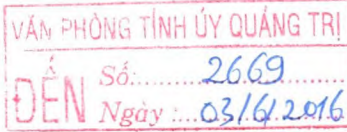 VĂN PHÒNG TỈNH ỦY QUẢNG TRỊ
ĐẾN
Số:..........2669..........
Ngày :....03/6/2016